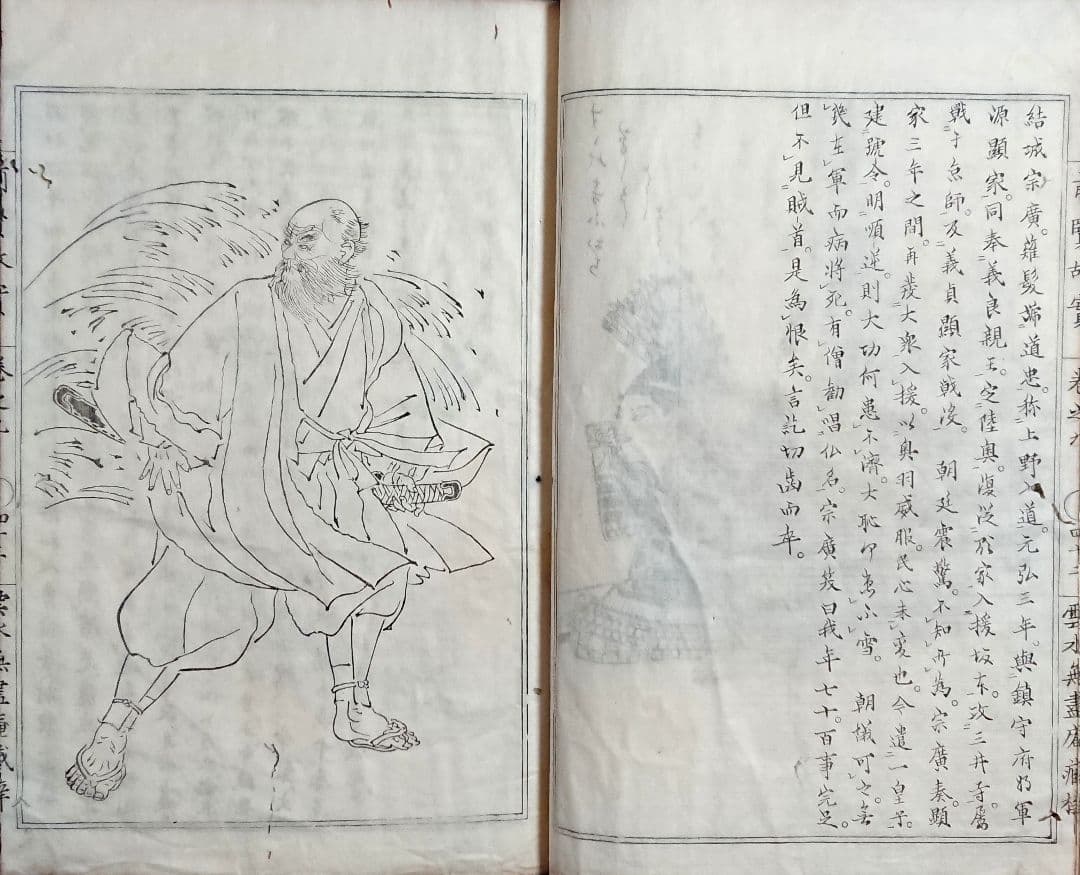 結城宗廣。薙髮號道忠。称上野入道。元弘三年。與鎮守府將軍
源顯家。同奉義良親王。定陸奥。復従顕家入援坂本。攻三井寺。屬
戰于京師。及義貞顯家戦没。朝廷震驚。不知所為。宗廣奏。顕
家三年之間。再發大衆入援。以奥羽威服。民心未變也。今遣一皇子。
建號令。明順逆。則大功何患不濟。大恥何患不雪。朝議可之。無
幾在軍而病將死。有僧勧唱仏名。宗廣笑曰我年七十。百事完足。
但不見賊首。是為恨矣。言訖切歯而卒。
前賢故實
雲水無盡庵藏梓